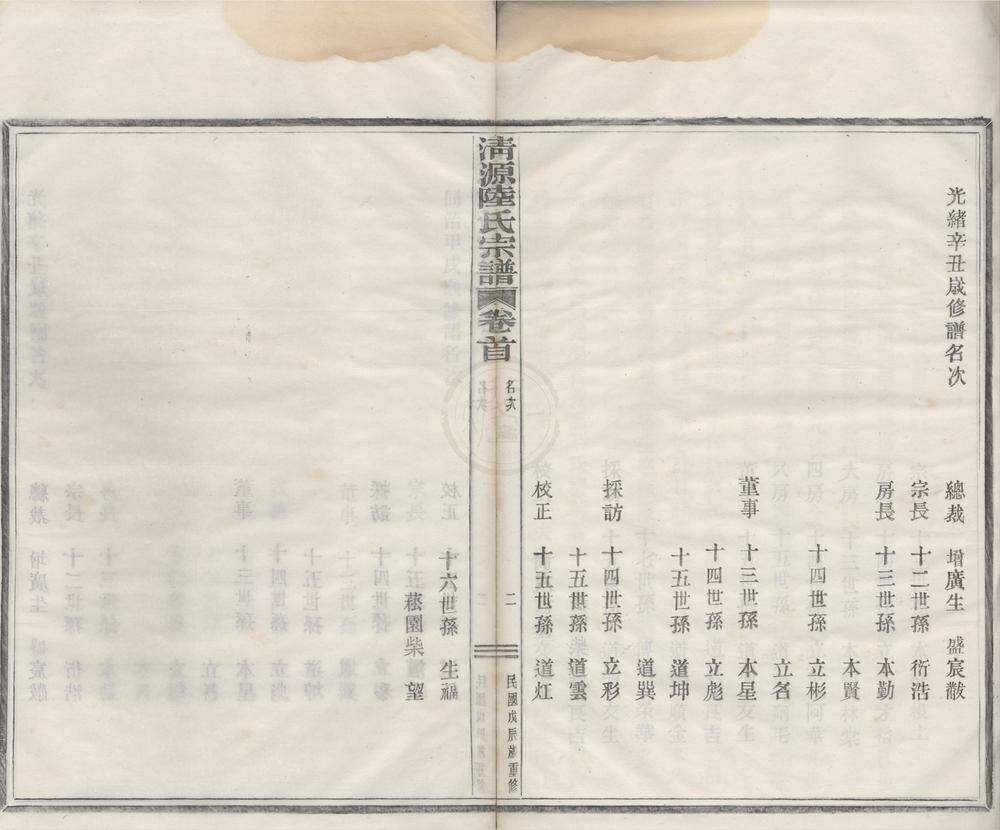 光緒辛丑歲修譜名次
總裁 增廣生 盛宸黻
宗長 十二世孫 衍浩
房長 十三世孫 本勤
本賢
十四世孫 立彬
立名
董事 十三世孫 本星
十四世孫 立彪
十五世孫 道坤
道巽
採訪 十四世孫 立彩
十五世孫 道雲
校正 十五世孫 道灴
清源陸氏宗譜 卷首
名次
二
民國戊辰歲重修
十六世孫 生福
菘園柴 望